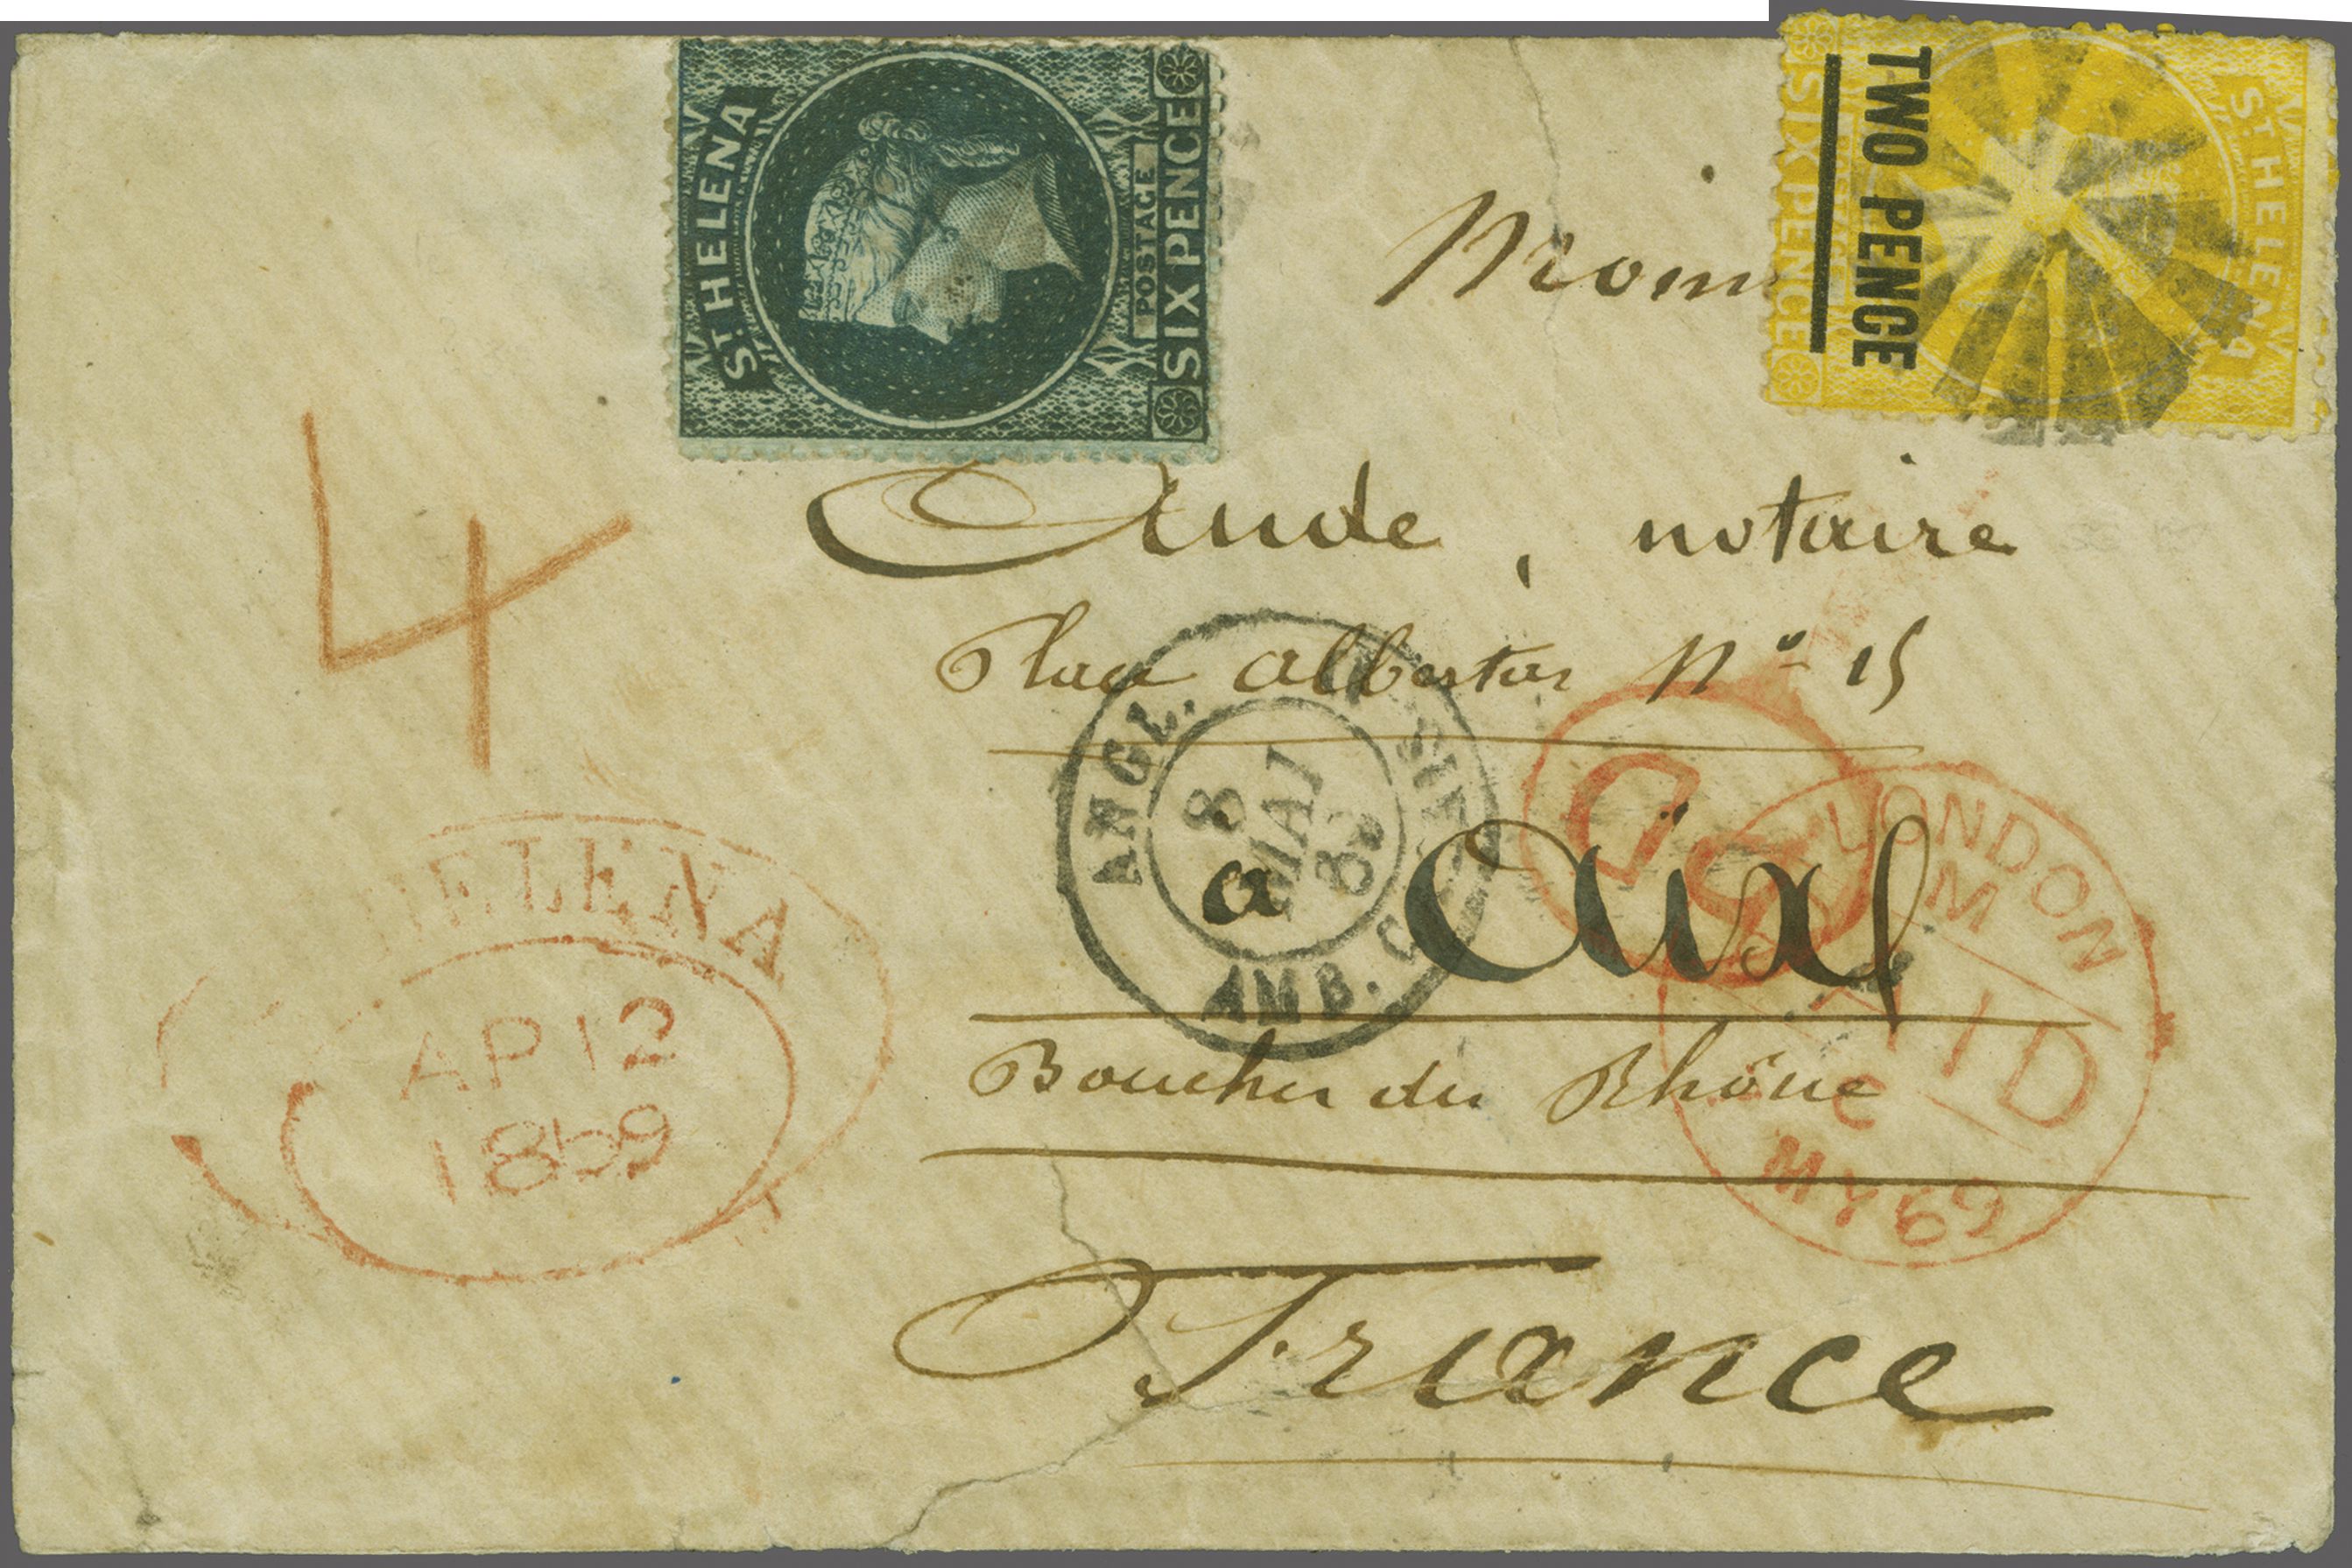 ST. HELENA
POSTAGE
SIX PENCE
TWO PENCE
SIX PENCE
ST. HELENA
4
Aude, notaire
Place albertas N° 15
a Aix
Bouches du Rhône
France
HELENA
AP 12
1869
ANGL.
8
MAI
AMB. C
PD
LONDON
M
PAID
MY 69